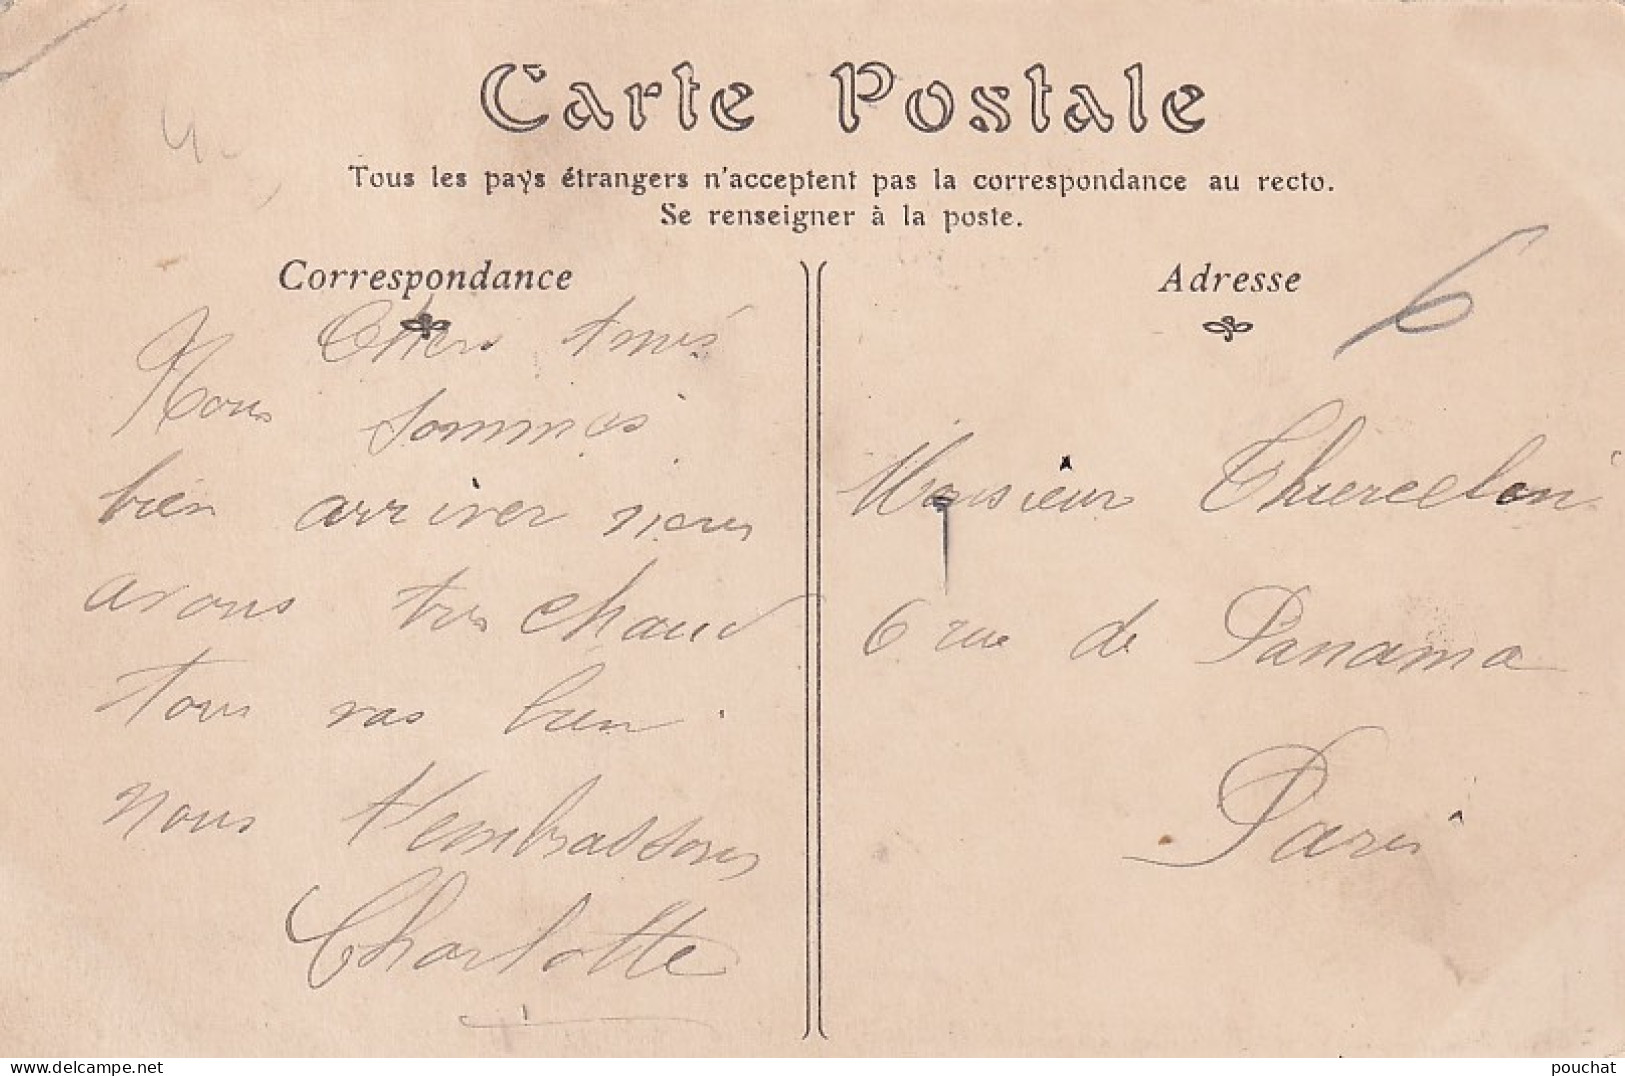 4
Carte Postale
Tous les pays étrangers n'acceptent pas la correspondance au recto.
Se renseigner à la poste.
Correspondance
Chers amis
Nous sommes
bien arriver nous
avons très chaud
tous vas bien.
nous t'embrassons
Charlotte
Adresse
6
Monsieur Thiercelin
6 rue de Panama
Paris
www.delcampe.net
pouchat